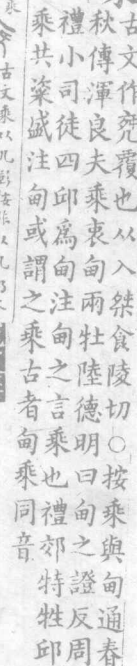 古文作𠅞覆也从入桀食陵切○按乘與甸通春
秋傳渾良夫乘衷甸兩牡陸德明曰甸之證反周
禮小司徒四邱爲甸注甸之言乘也禮郊特牲邱
乘共粢盛注甸或謂之乘古者甸乘同音
古文乘从几